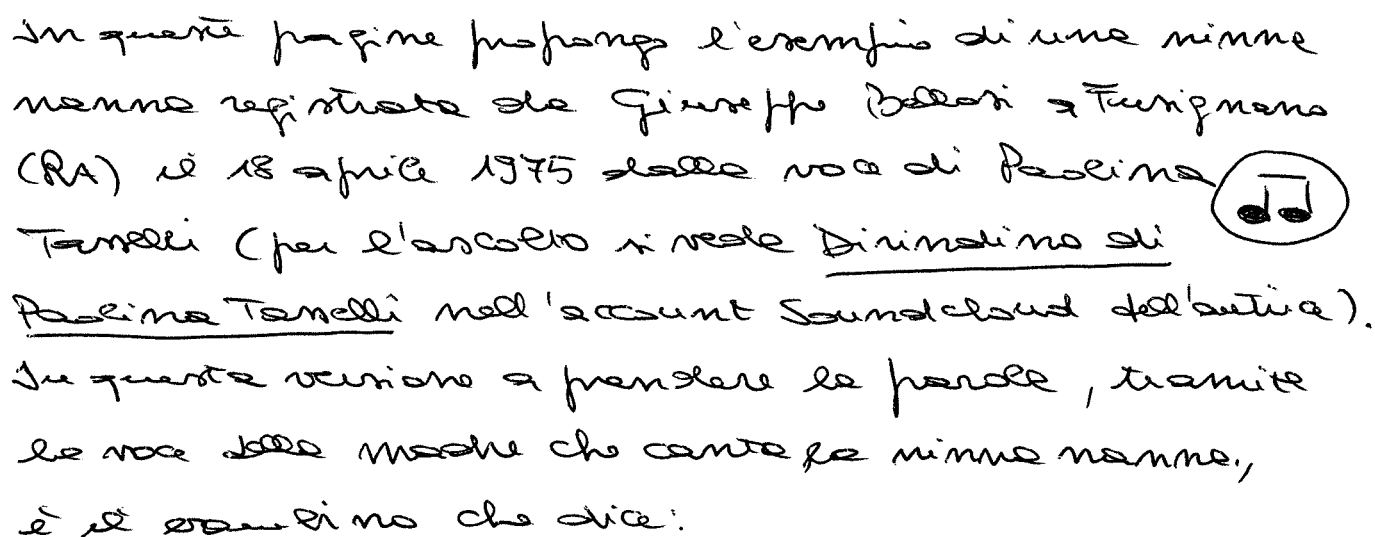 In queste pagine propongo l'esempio di una ninna
nanna registrata da Giuseppe Bellosi a Fusignano
(RA) il 18 aprile 1975 dalla voce di Paolina
Tasselli (per l'ascolto si veda Dirindina di
Paolina Tasselli nell'account Soundcloud dell'autrice).
In questa versione a prendere la parola, tramite
la voce della madre che canta la ninna nanna,
è il bambino che dice: